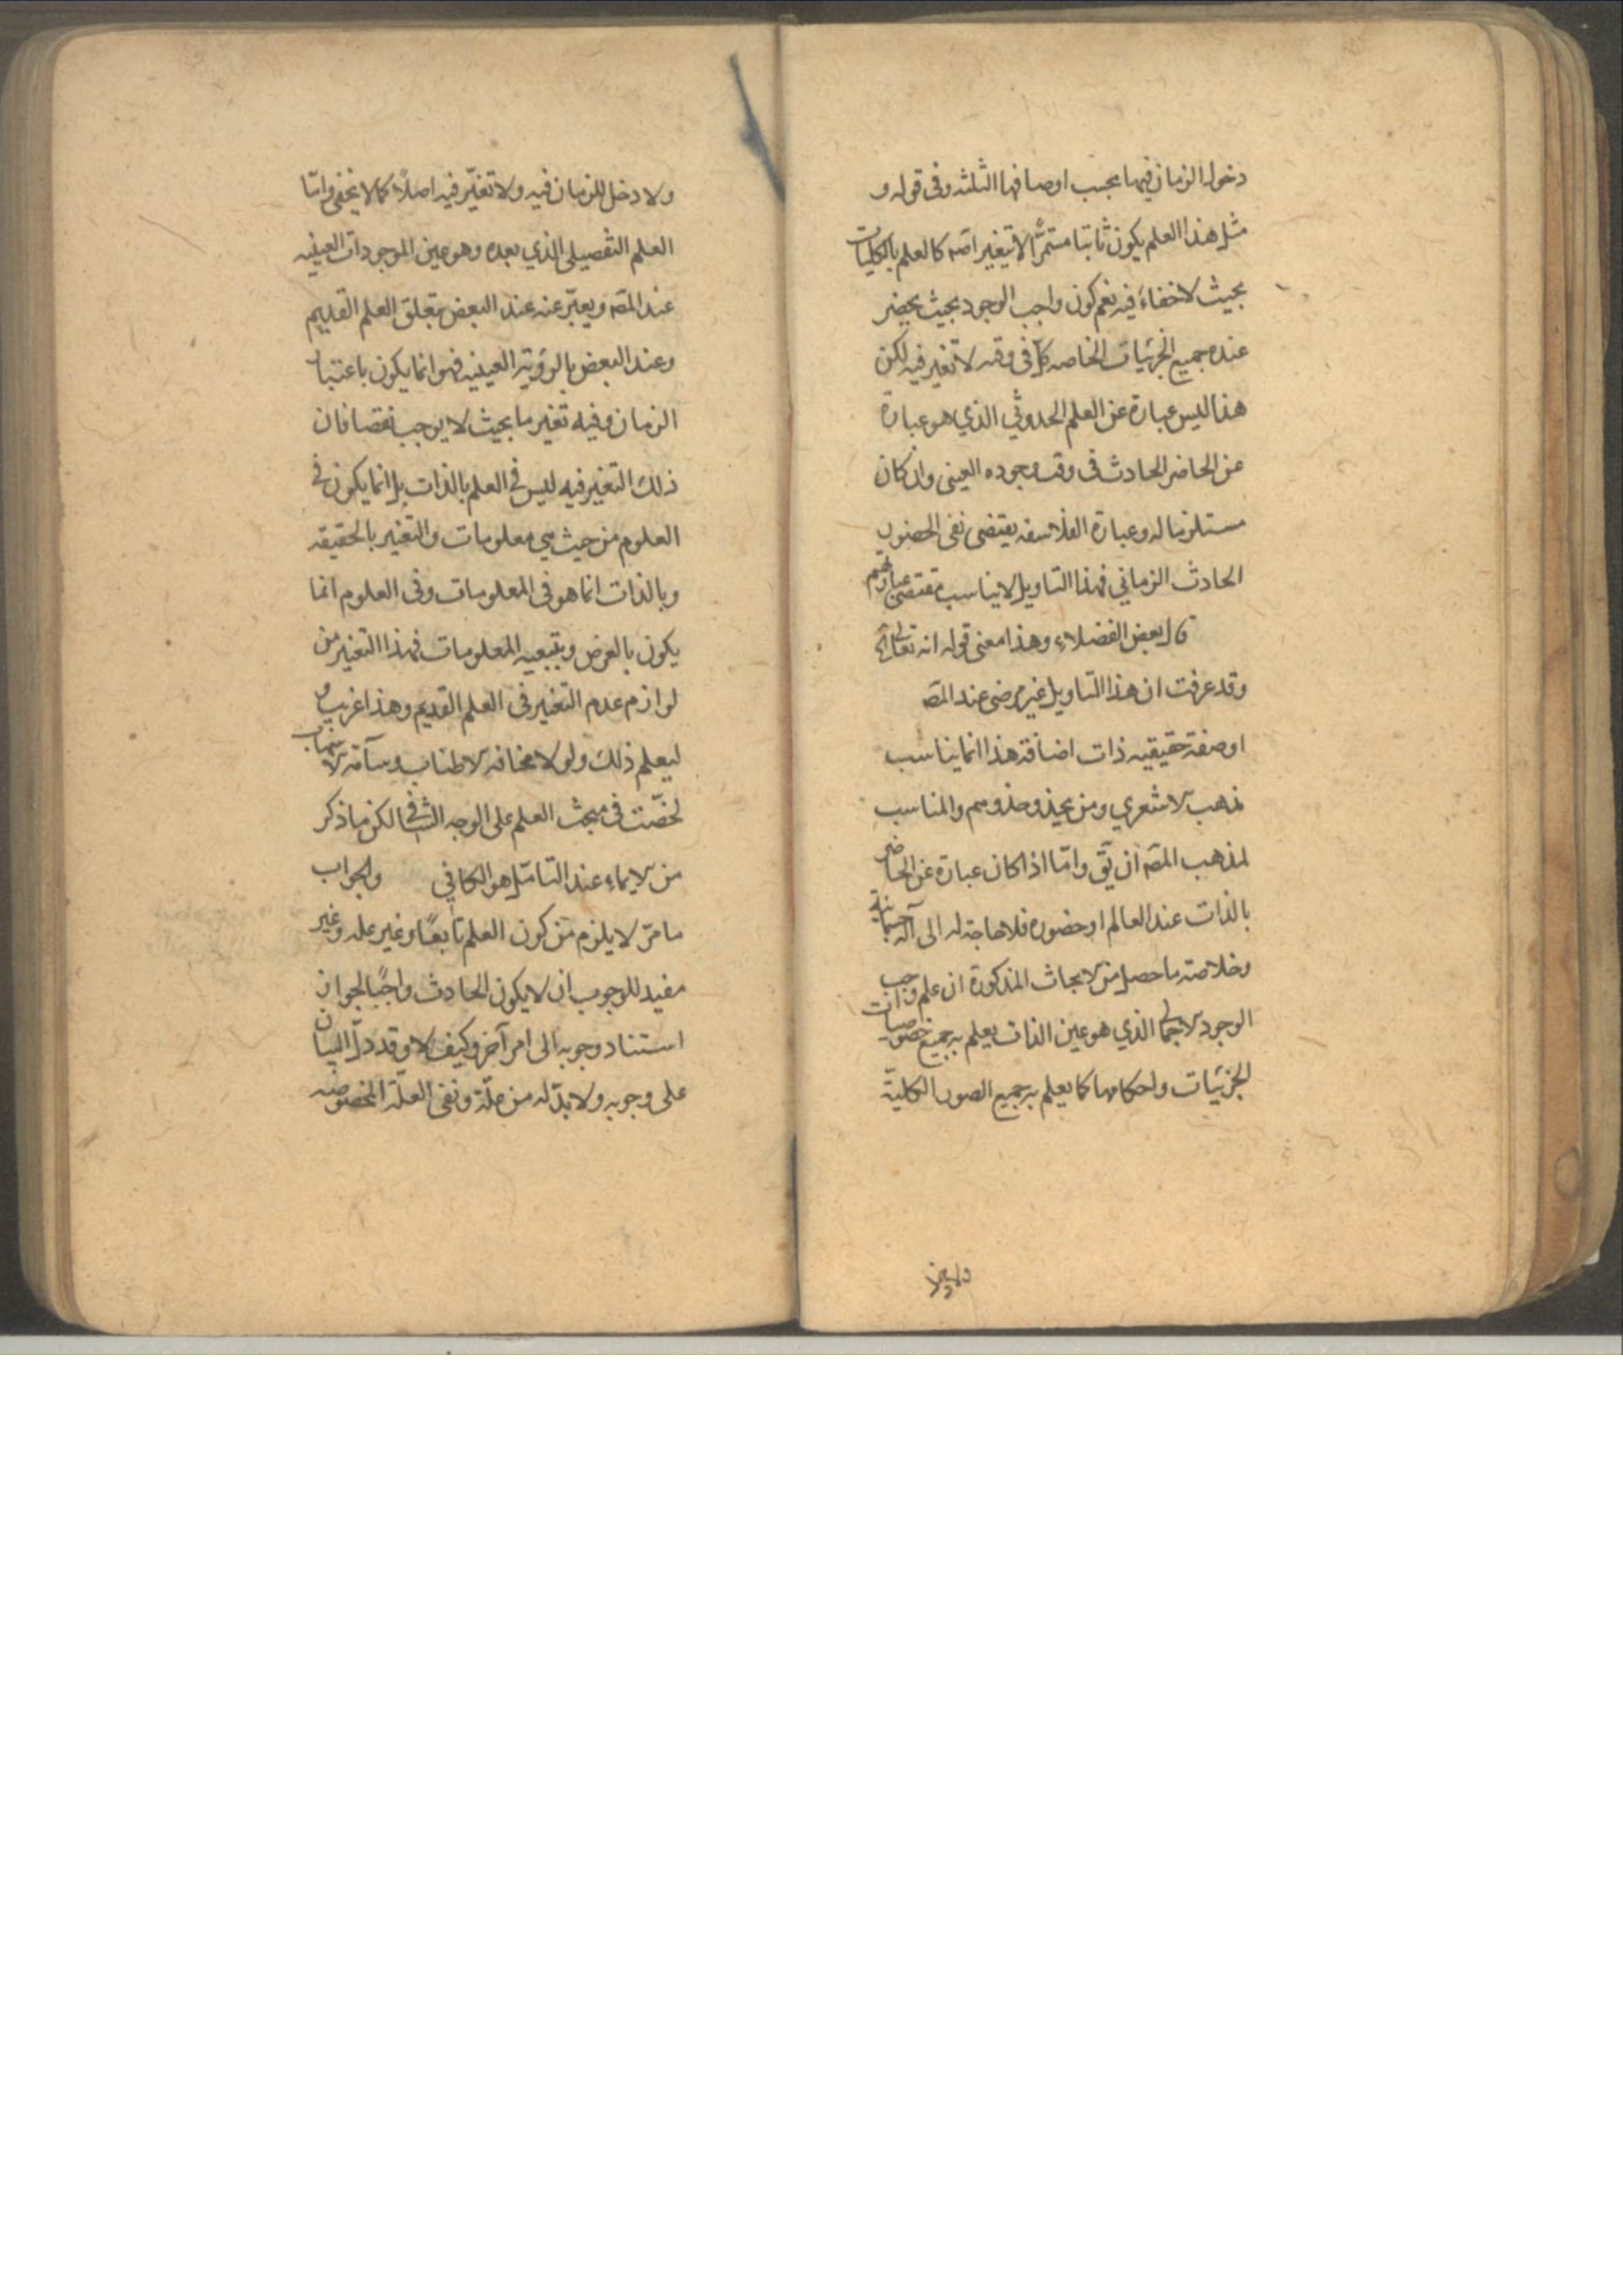 دخول الزمان فيها بحسب اوصافها الثلثه وفى قوله و
مثل هذا العلم يكون ثابتا مستمرًّا لا يتغير اصه كالعلم بالكليات
بحيث لا خفاءَ فيه نعم كون واجب الوجود بحيث يحضر
عنده جميع الجزئيات الخاصه كلّ فى وقته لا تغير فيه لكن
هذا ليس عبارة عن العلم الحدوثي الذي هو عبارة
عن الحاضر الحادث فى وقت وجوده العينى وان كان
مستلزما له وعبارة الفلاسفه يقتضى نفى الحضور
الحادث الزماني فهذا التاويل لا يناسب مقتضى عبارتهم
قال بعض الفضلاء وهذا معنى قوله انه تعالى
وقد عرفت ان هذا التاويل غير مرضى عند المصَ
او صفة حقيقيه ذات اضافة هذا انما يناسب
مذهب الاشعري ومن يحذو حذوهم والمناسب
لمذهب المصَ ان يقَ وامّا اذا كان عبارة عن الحاضر
بالذات عند العالم او حضوره فلا حاجة له الى آلة جسمانية
وخلاصة ما حصل من الابحاث المذكورة ان علم واجب
الوجود الاجمالى الذي هو عين الذات يعلم به جميع خصوصيات
الجزئيات واحكامها كما يعلم به جميع الصور الكلية
ولا دخل
ولا دخل للزمان فيه ولا تغيّر فيه اصلًا كما لا يخفى وامّا
العلم التفصيلى الذي بعده وهو عين الموجودات العينيه
عند المصَ ويعبّر عنه عند البعض بتعلق العلم القديم
وعند البعض بالرؤية العينيه فهو انما يكون باعتبار
الزمان وفيه تغير ما بحيث لا يوجب نقصا فان
ذلك التغير فيه ليس فى العلم بالذات بل انما يكون فى
العلوم من حيث هي معلومات والتغير بالحقيقه
وبالذات انما هو فى المعلومات وفى العلوم انما
يكون بالعرض وبتبعيه المعلومات فهذا التغير من
لوازم عدم التغير فى العلم القديم وهذا غريب
ليعلم ذلك ولولا مخافة الاطناب وسآمة
لخصّت فى مبحث العلم على الوجه الشافى لكن ما ذكر
من الايماء عند التامّل هو الكافي والجواب
ما مرّ لا يلزم من كون العلم تابعًا وغير علة وغير
مفيد للوجوب ان لا يكون الحادث واجبًا لجواز
استناد وجوبه الى امر آخر وكيف لا وقد دلّ البيان
على وجوبه ولا بدّ له من علّة ونفى العلّة المخصوصه